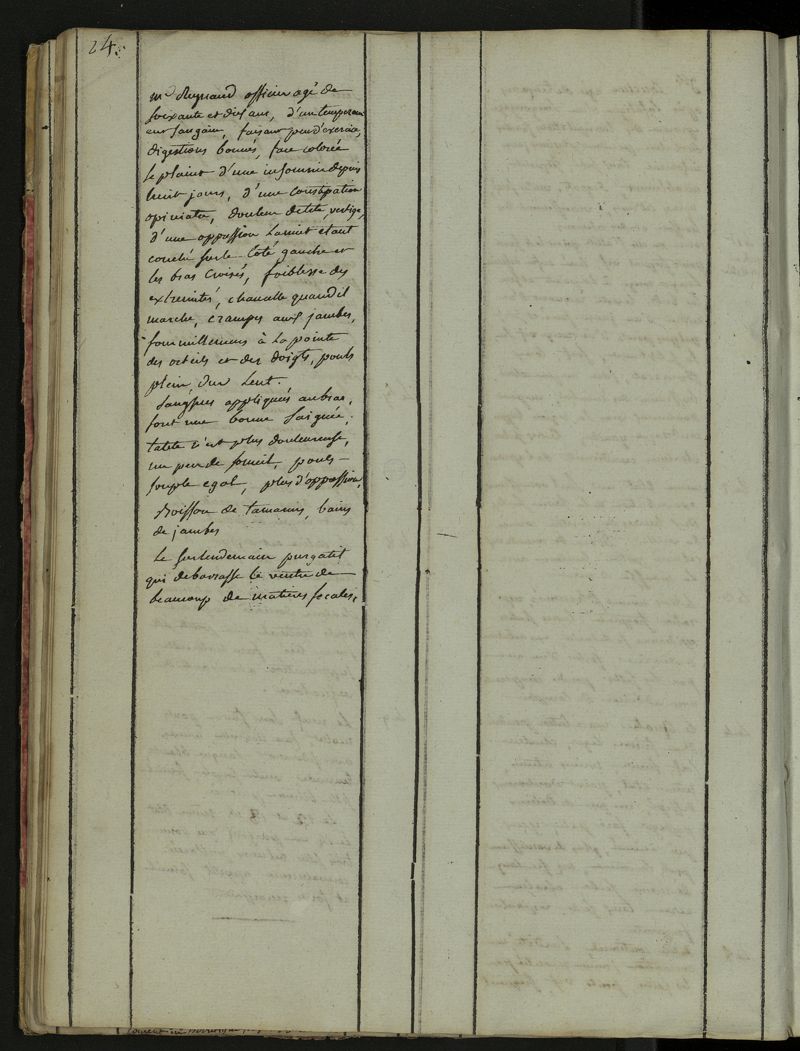 24.
mr Reynaud officier agé de
soixante et dix ans, d'un tempéram
ent sanguin, faisant peu d'exercice,
digestions bonnes, face colorée
se plaint d'une insomnie depuis
huit jours, d'une constipation
opiniatre, douleur de tete, vertige,
d'une oppression la nuit etant
couché sur le coté gauche et
les bras croisés, foiblesse des
extremités, chancelle quand il
marche, crampes aux jambes,
fourmillemens à la pointe
des orteils et des doigts, pouls
plein, dur lent.
Sangsues appliquées au bras,
font une bonne saignée,
la tete n'est plus douleureuse,
un peu de someil, pouls
souple egal, plus d'oppression,
Boisson de tamarins, bains
de jambes
Le surlendemain purgatif
qui debarrasse le ventre de
beaucoup de matieres fecales,